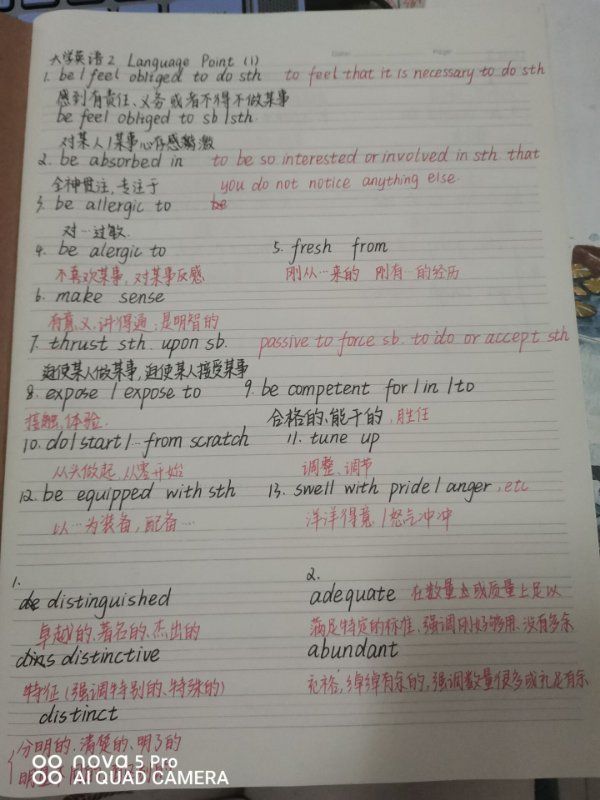 大学英语2 Language Point (1)
1. be / feel obliged to do sth to feel that it is necessary to do sth
感到有责任、义务或者不得不做某事
be feel obliged to sb / sth
对某人/某事心存感激
2. be absorbed in to be so interested or involved in sth that
全神贯注,专注于 you do not notice anything else.
3. be allergic to be
对…过敏.
4. be alergic to 5. fresh from
不喜欢某事,对某事反感 刚从…来的 刚有…的经历
6. make sense
有意义,讲得通,是明智的
7. thrust sth. upon sb. passive to force sb. to do or accept sth
迫使某人做某事,迫使某人接受某事
8. expose / expose to 9. be competent for / in / to
接触,体验. 合格的、能干的,胜任
10. do / start / … from scratch 11. tune up
从头做起,从零开始 调整、调节
12. be equipped with sth 13. swell with pride / anger, etc
以…为装备,配备… 洋洋得意 / 怒气冲冲
1. 2.
distinguished adequate 在数量上或质量上足以
卓越的、著名的、杰出的 满足特定的标准,强调刚好够用,没有多余
distinctive abundant
特征(强调特别的、特殊的) 充裕,绰绰有余的,强调数量很多或充足有余
distinct
分明的、清楚的、明了的
明显不同的
nova 5 Pro
AI QUAD CAMERA